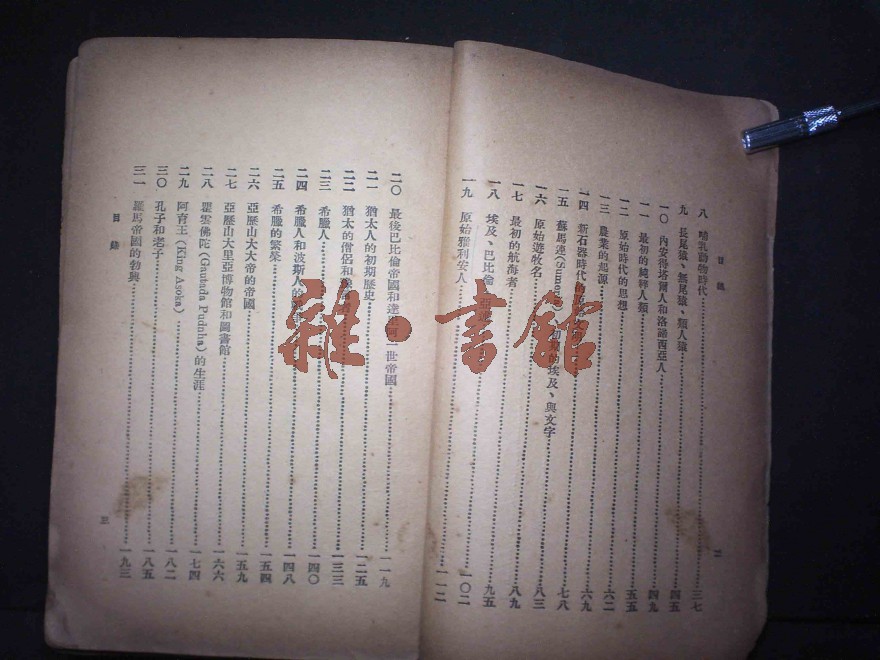 目錄
八 哺乳動物時代 三七
九 長尾猿、無尾猿、類人猿 四五
一〇 內安得塔爾人和洛諦西亞人 四九
一一 最初的純粹人類 五五
一二 原始時代的思想 六二
一三 農業的起源 六九
一四 新石器時代的 七八
一五 蘇馬 初 的埃及、與文字 八三
一六 原始遊牧名 八九
一七 最初的航海者 九五
一八 埃及、巴比倫 一〇二
一九 原始雅利安人 一一二
二
二〇 最後巴比倫帝國和達 一世帝國 一一九
二一 猶太人的初期歷史 一二五
二二 猶太的僧侶和 一三三
二三 希臘人 一四〇
二四 希臘人和波斯人的 一四八
二五 希臘的繁榮 一五四
二六 亞歷山大大帝的帝國 一五九
二七 亞歷山大里亞博物館和圖書館 一六六
二八 瞿雲佛陀(Gautada Pudnha)的生涯 一七四
二九 阿育王(King Asoka) 一八二
三〇 孔子和老子 一八五
三一 羅馬帝國的勃興 一九三
目錄
三
雜·書館